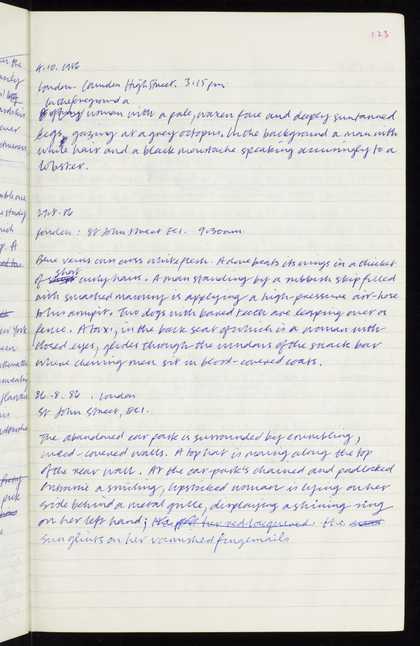 123
4.10.1986
London. Camden High Street. 3.15 pm.
In the foreground a
woman with a pale, waxen face and deeply suntanned
legs, gazing at a grey octopus. In the background a man with
white hair and a black moustache speaking accusingly to a
lobster.
29.8.86
London: St John Street EC1. 9.30am.
Blue veins criss cross white flesh. A dove beats its wings in a thicket
short
of curly hairs. A man standing by a rubbish skip filled
with smashed masonry is applying a high-pressure air-hose
to his armpit. Two dogs with bared teeth are leaping over a
fence. A taxi, in the back seat of which is a woman with
closed eyes, glides through the window of the snack bar
where chewing men sit in blood-covered coats.
26-8-86. London
St John Street, EC1.
The abandoned car park is surrounded by crumbling,
weed-covered walls. A top hat is moving along the top
of the rear wall. At the car-park's chained and padlocked
entrance a smiling, lipsticked woman is lying on her
side behind a metal grille, displaying a shining ring
on her left hand; her red lacquered the
sun glints on her varnished fingernails